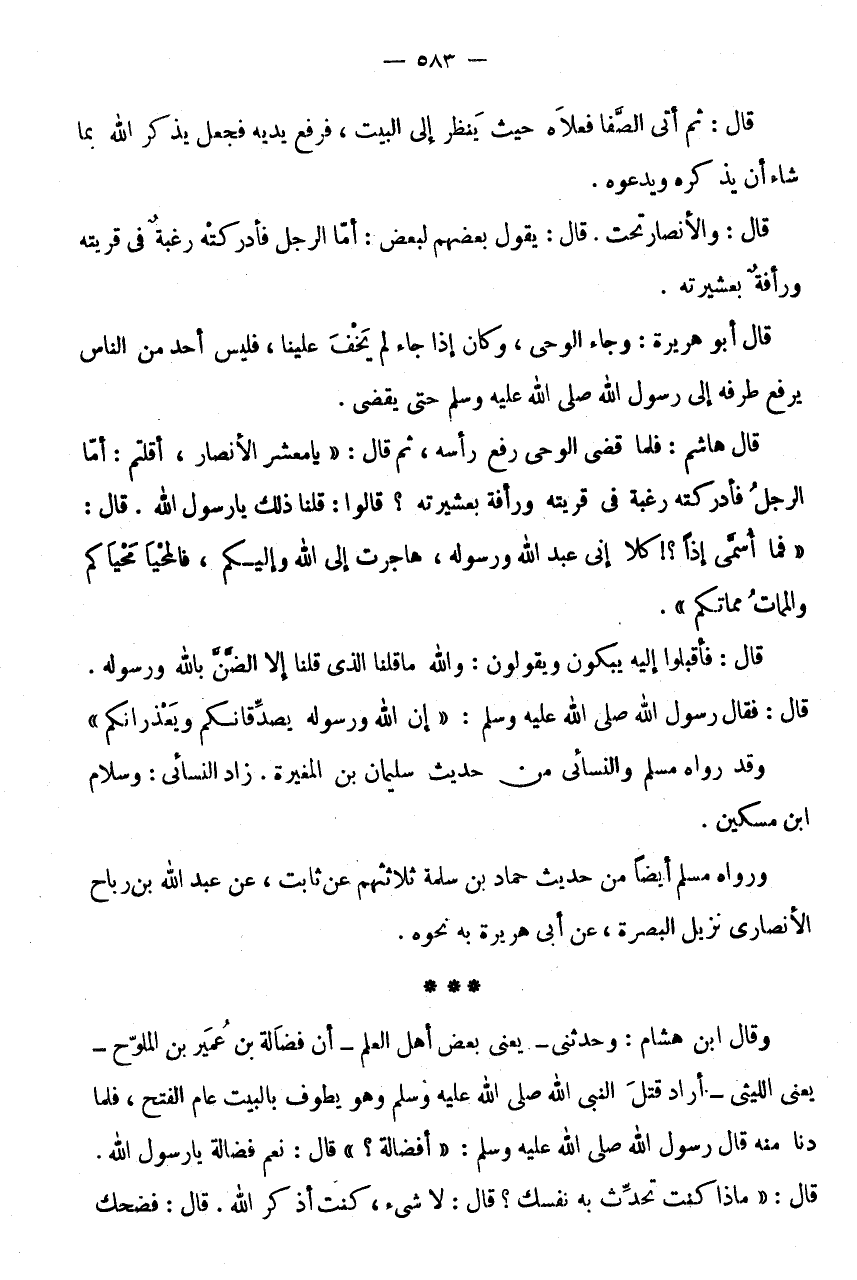 — ٥٨٣ —
قال : ثم أتى الصَّفا فعلاَه حيث يَنظر إلى البيت ، فرفع يديه فجعل يذكر الله بما
شاء أن يذكره ويدعوه .
قال : والأنصار تحت . قال : يقول بعضهم لبعض : أمّا الرجل فأدركتْه رغبةٌ فى قريته
ورأفةٌ بعشيرته .
قال أبو هريرة : وجاء الوحى ، وكان إذا جاء لم يَخْفَ علينا ، فليس أحد من الناس
يرفع طرفه إلى رسول الله صلى الله عليه وسلم حتى يقضى .
قال هاشم : فلما قضى الوحى رفع رأسه ، ثم قال : « يامعشر الأنصار ، أقلتم : أمّا
الرجلُ فأدركته رغبة فى قريته ورأفة بعشيرته ؟ قالوا : قلنا ذلك يارسول الله . قال :
« فما أُسمَّى إذاً ؟! كلا إنى عبد الله ورسوله ، هاجرت إلى الله وإليكم ، فالمحْيَا مَحْيَاكم
والمماتُ مماتكم » .
قال : فأقبلوا إليه يبكون ويقولون : والله ماقلنا الذى قلنا إلا الضَّنَّ بالله ورسوله .
قال : فقال رسول الله صلى الله عليه وسلم : « إن الله ورسوله يصدِّقانكم ويَعْذرانكم »
وقد رواه مسلم والنسائى من حديث سليمان بن المغيرة . زاد النسائى : وسلام
ابن مسكين .
ورواه مسلم أيضاً من حديث حماد بن سلمة ثلاثتهم عن ثابت ، عن عبد الله بن رباح
الأنصارى نزيل البصرة ، عن أبى هريرة به نحوه .
* * *
وقال ابن هشام : وحدثنى ــ يعنى بعض أهل العلم ــ أن فضَالة بن عُميَر بن الملوّح ــ
يعنى الليثى ــ أراد قتلَ النبى الله صلى الله عليه وسلم وهو يطوف بالبيت عام الفتح ، فلما
دنا منه قال رسول الله صلى الله عليه وسلم : « أفضالة ؟ » قال : نعم فضالة يارسول الله .
قال : « ماذا كنت تحدِّث به نفسك ؟ قال : لا شىء ، كنت أذكر الله . قال : فضحك